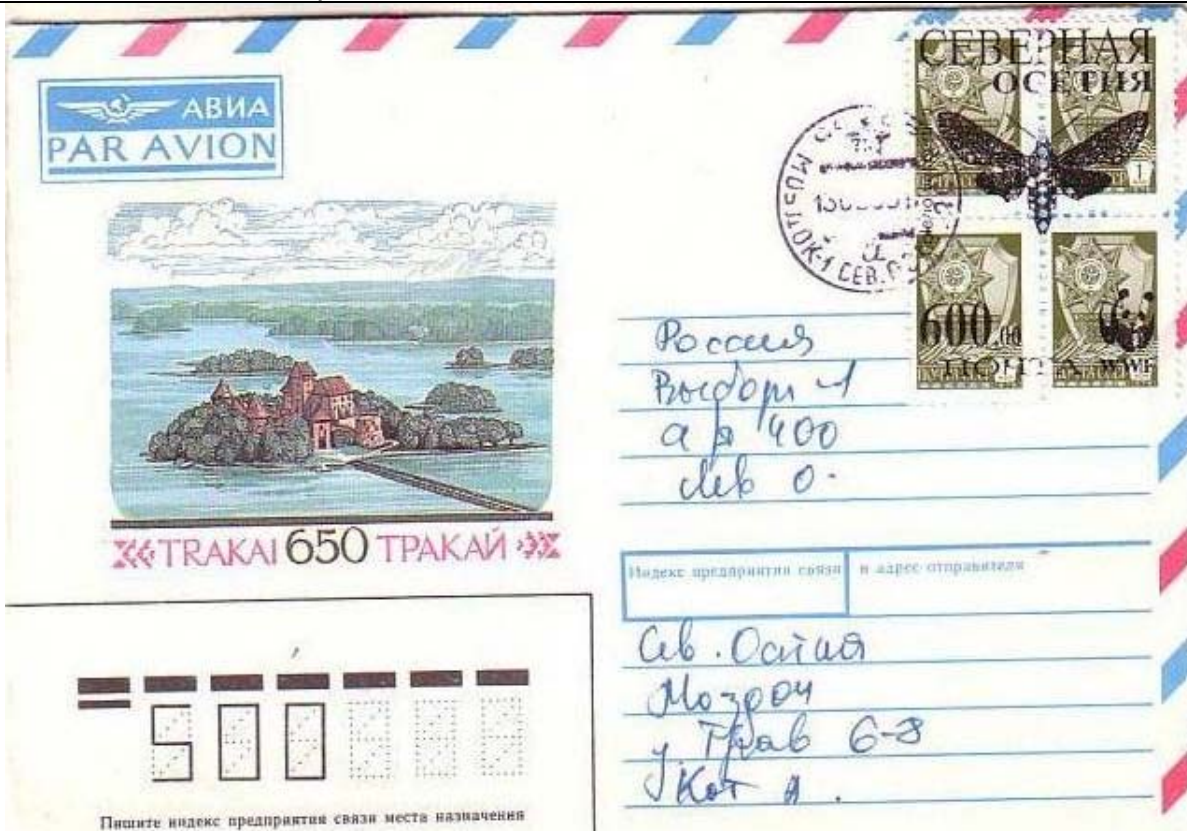 АВИА
PAR AVION
СЕВЕРНАЯ
ОСЕТИЯ
1
600.00
ПОЧТА
WWF
МОЗДОК-1 СЕВ.
Россия
Выборг-1
а я 400
Лев О.
TRAKAI 650 ТРАКАЙ
Индекс предприятия связи и адрес отправителя
Сев. Осетия
Моздок
у. 6-8
Кот А.
500
Пишите индекс предприятия связи места назначения